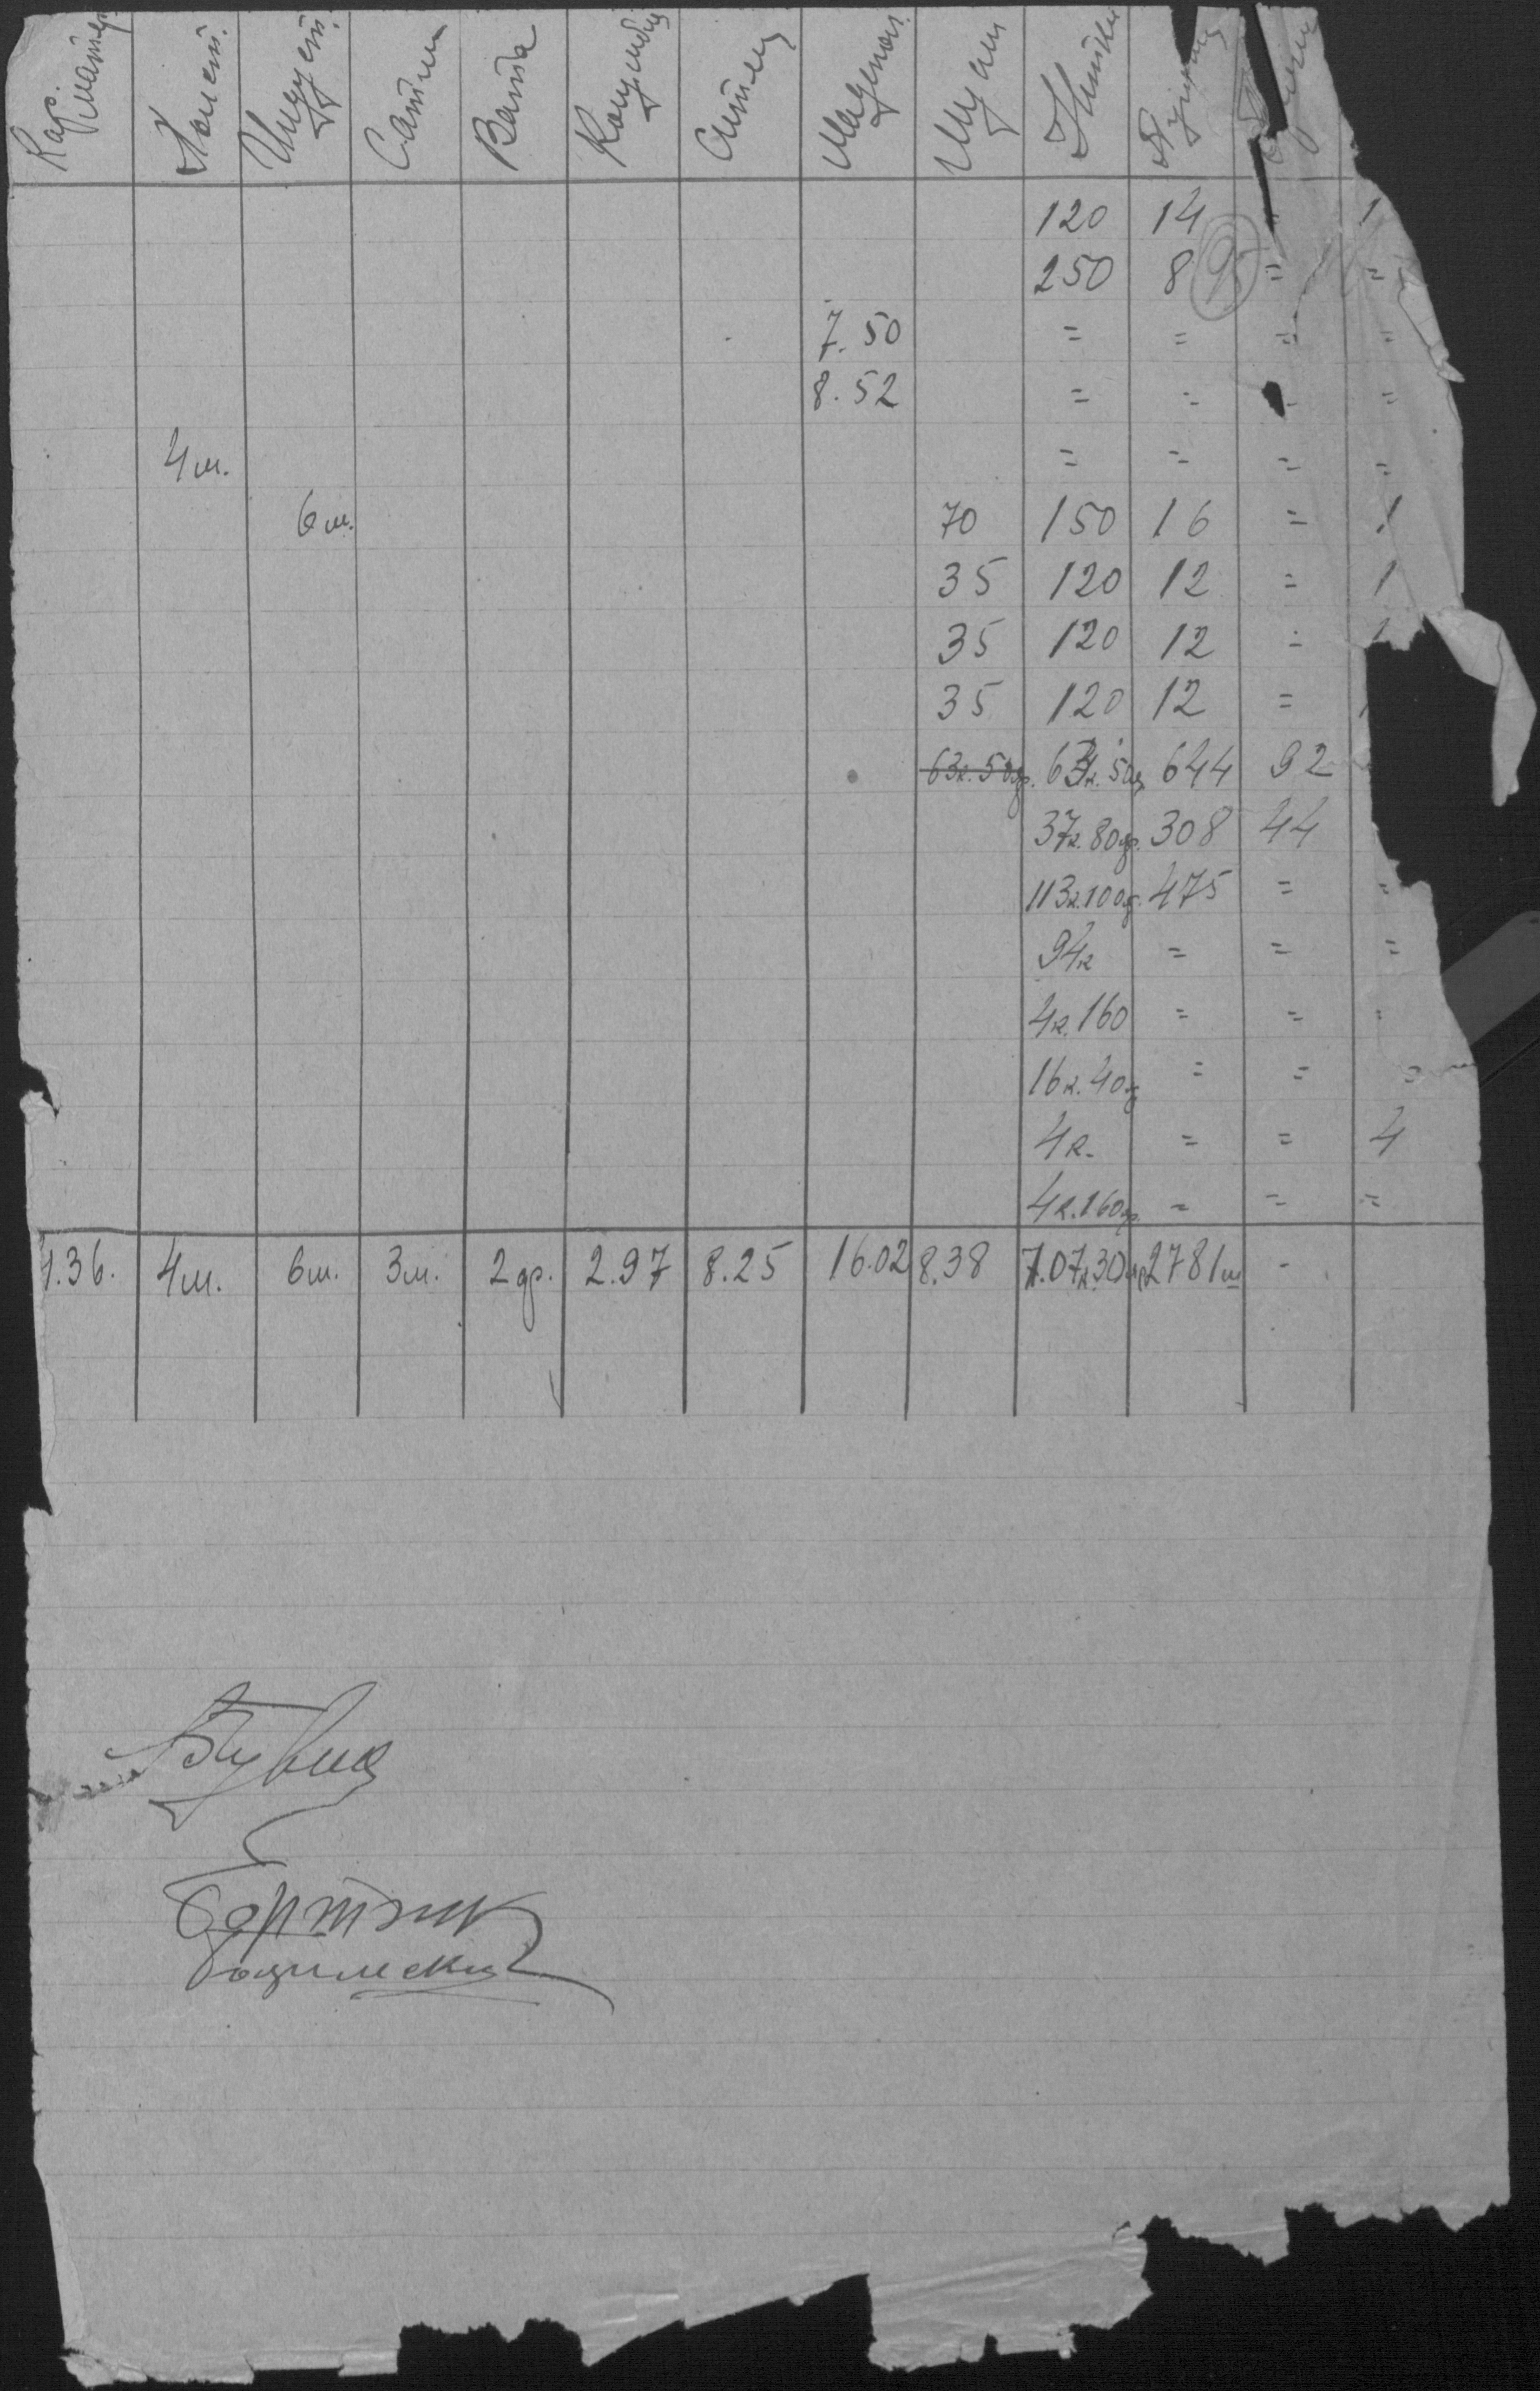 Кар. матер. Полот. Индует. Сатин Вата Коленкор Ситец Мадепол. Шуол Нитки Пуговиц
120 14 = 1
250 8 95 = =
7.50 = = = =
8.52 = = = =
4 ш. = = = =
6 ш. 70 150 16 = 1
35 120 12 = 1
35 120 12 = 1
35 120 12 = 1
63к. 50гр. 63к. 50гр. 644 92
37к. 80гр. 308 44
113к. 100гр. 475 = =
94к = = =
4к. 160 = = =
16к. 40гр = = =
4к. = = 4
4к. 160гр. = = =
1.36. 4ш. 6ш. 3ш. 2гр. 2.97 8.25 16.02 8.38 7.07к.30гр. 2781ш -
Бортник